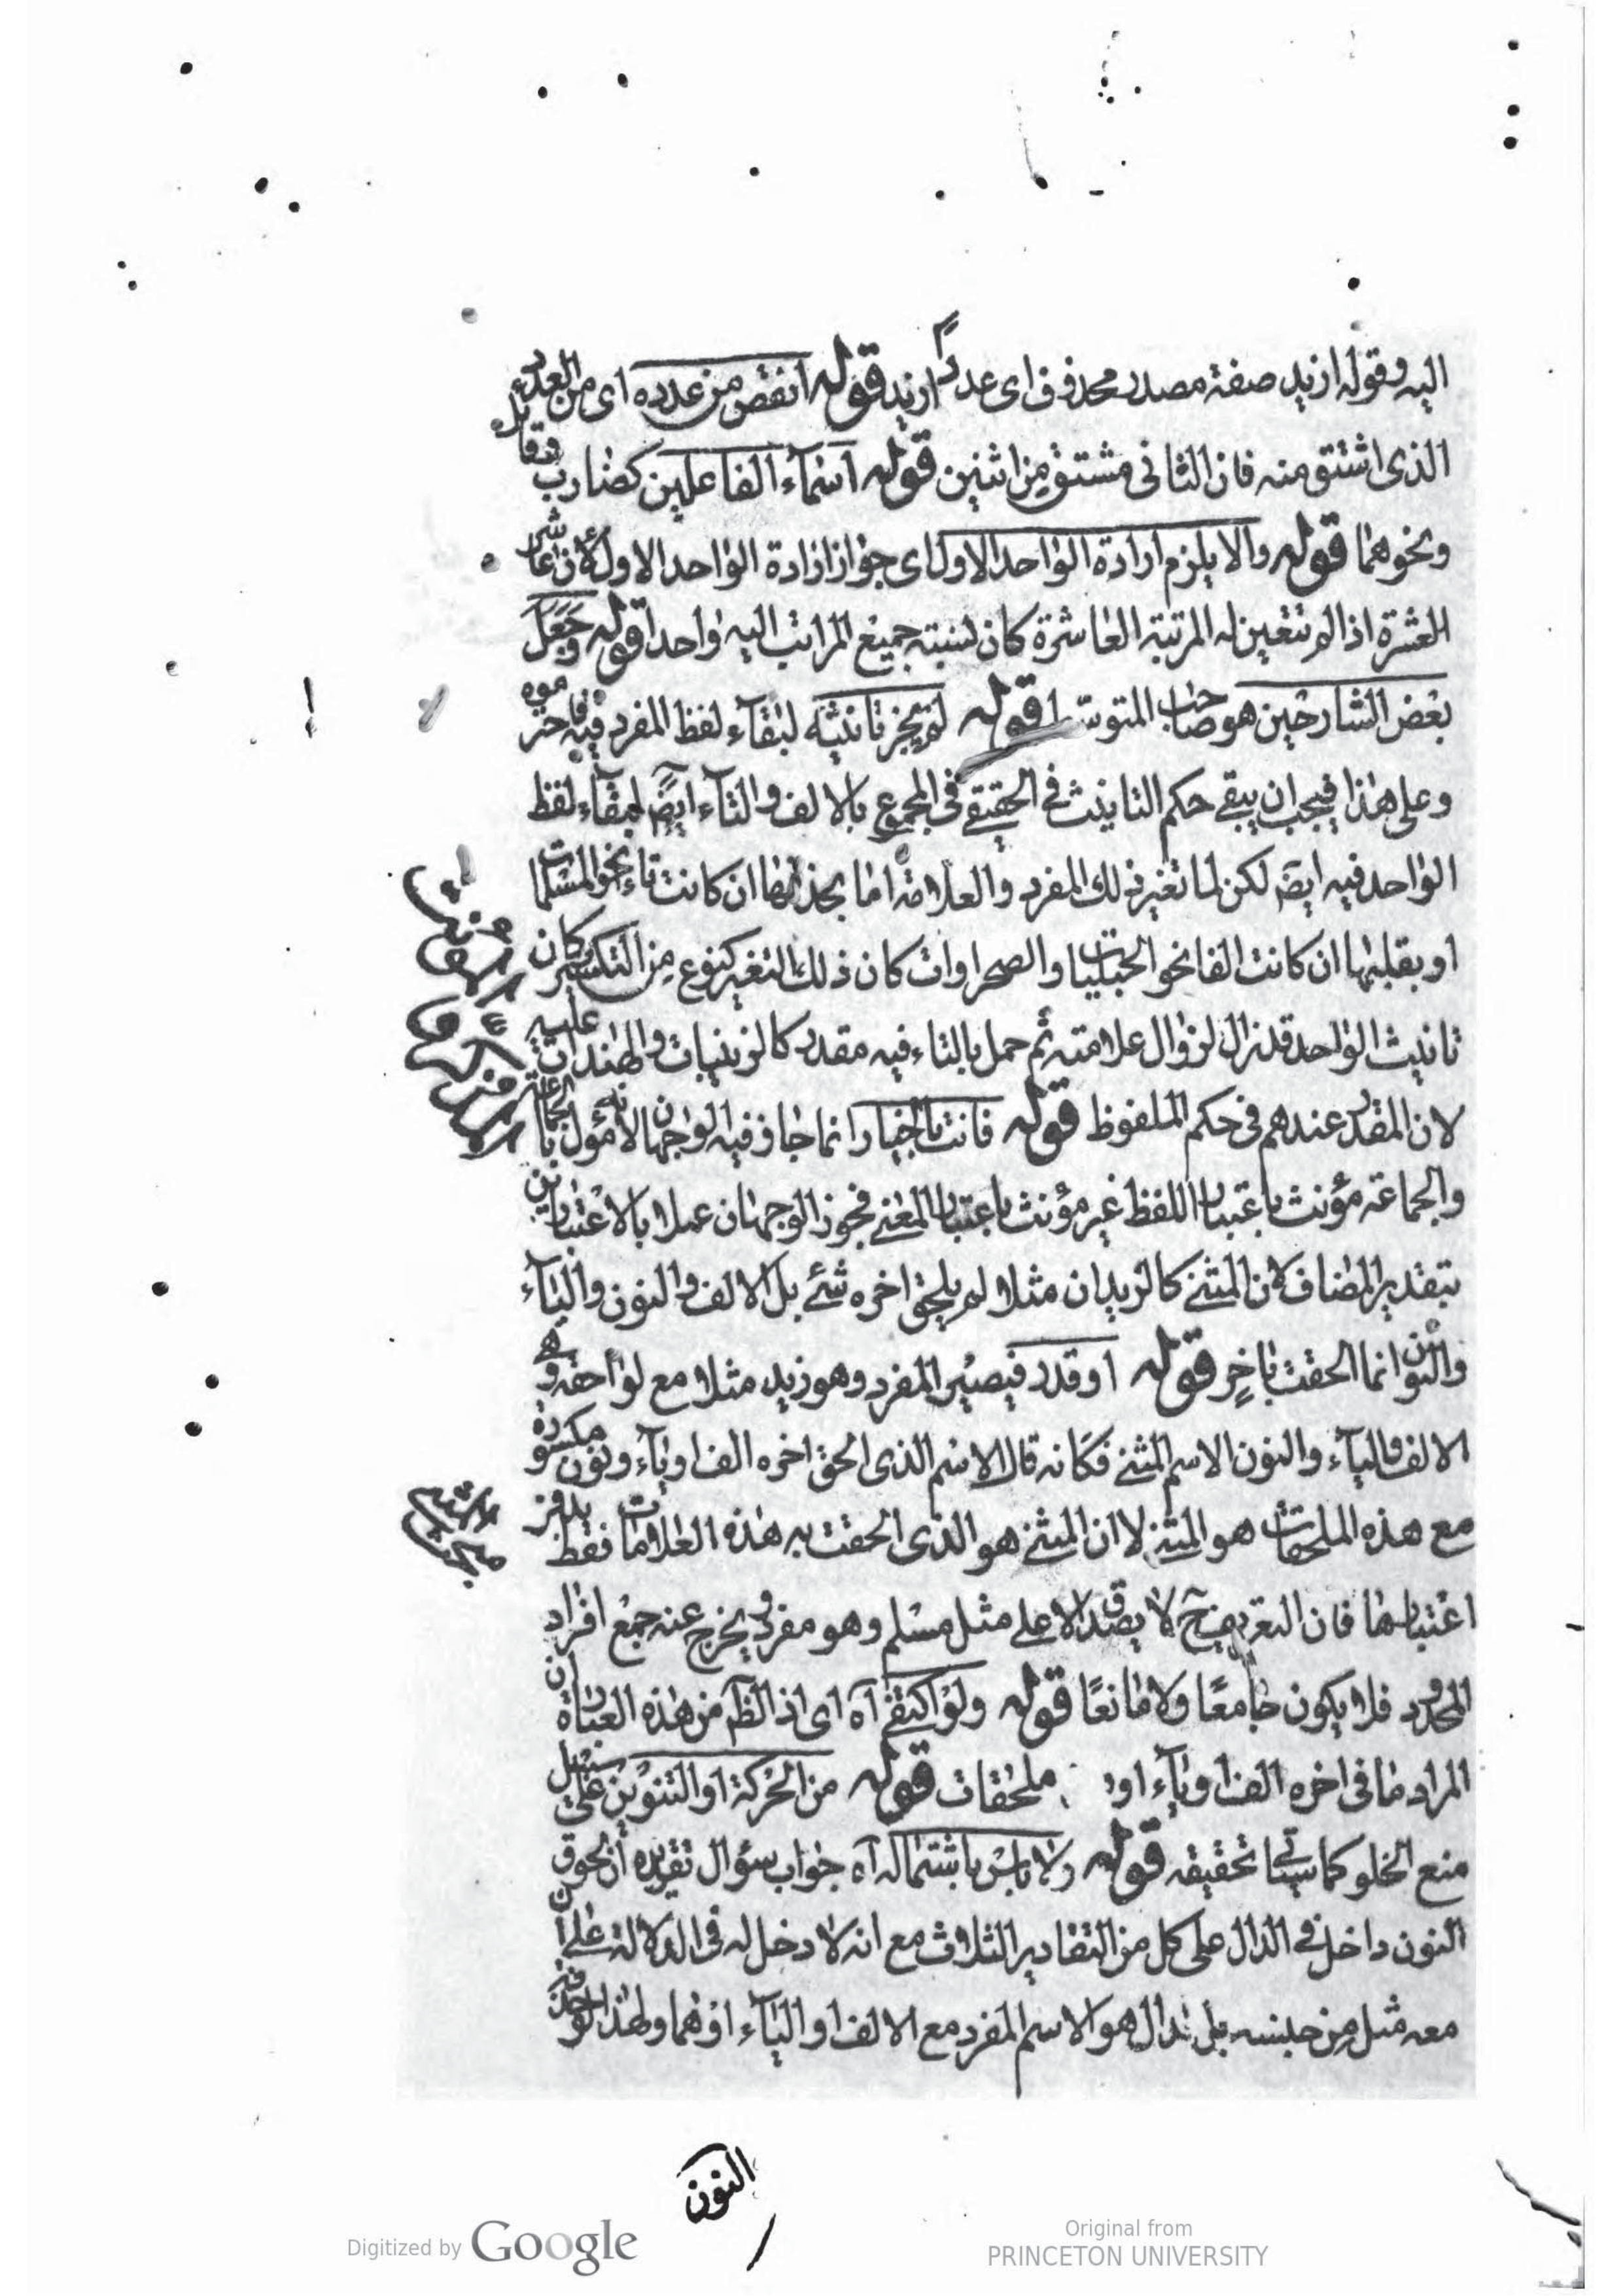 اليه وقوله ازيد صفة مصدر محذوف اى عددًا ازيد قوله انقص من عدده اى من العدد
الذى اشتق منه فان الثانى مشتق من اثنين قوله اسمآء الفاعلين كضارب وقاتل
ونحوهما قوله والا يلزم ارادة الواحد الاول اى جواز ارادة الواحد الاول لان عاشر
العشرة اذا لم تتعين له المرتبة العاشرة كان نسبته جميع المراتب اليه واحدا قوله وجعل
بعض الشارحين هو صاحب المتوسط قوله لم يجز تانيثه لبقآء لفظ المفرد فيه
وعلى هذا فيجب ان يبقى حكم التانيث فى الحقيقى فى المجموع بالالف والتآء ايضً لبقآء لفظ
الواحد فيه ايضً لكن لما تغير ذلك المفرد والعلامة اما بحذفها ان كانت تاء نحو المسلمات
او بقلبها ان كانت الفا نحو الحبليات والصحراوات كان ذلك التغير كنوع من التكسير وكان
تانيث الواحد قد زال لزوال علامته ثم حمل بالتاء فيه مقدر كالزينبات والهندات عليه
لان المقدر عندهم فى حكم الملفوظ قوله فانت بالخيار انما جاز فيه الوجهان لانه مؤول بالجماعة
والجماعة مؤنث باعتبار اللفظ غير مؤنث باعتبار المعنى فجوز الوجهان عملا بالاعتبارين
بتقدير المضاف لان المثنى كالزيدان مثلا لم يلحق اخره شئ بل الالف والنون واليآء
والنون انما الحقت باخر قوله او قدر فيصير المفرد وهو زيد مثلا مع لواحقه وهى
الالف واليآء والنون الاسم المثنى فكانه قال الاسم الذى الحق اخره الف او يآء ونون مكسورة
مع هذه الملحقات هو المثنى لا ان المثنى هو الذى الحقت به هذه العلامات فقط بدون
اعتبارها فان التعريف ح لا يصدق الا على مثل مسلم وهو مفرد ويخرج عنه جمع افراد
المحدود فلا يكون جامعًا ولا مانعًا قوله ولو اكتفى آه اى اذ الظآ من هذه العبارة ان
المراد ما فى اخره الف او يآء او ملحقات قوله من الحركة او التنوين على سبيل
منع الخلو كما سياتى تحقيقه قوله ولا باس باشتماله آه جواب سؤال تقريره ان لحوق
النون داخل فى الدال على كل من التقادير الثلاث مع انه لا دخل له فى الدلالة على ان
معه مثل من جنسه بل الدال هو الاسم المفرد مع الالف او اليآء او هما ولهذا لو حذف
النون
Digitized by Google
Original from
PRINCETON UNIVERSITY